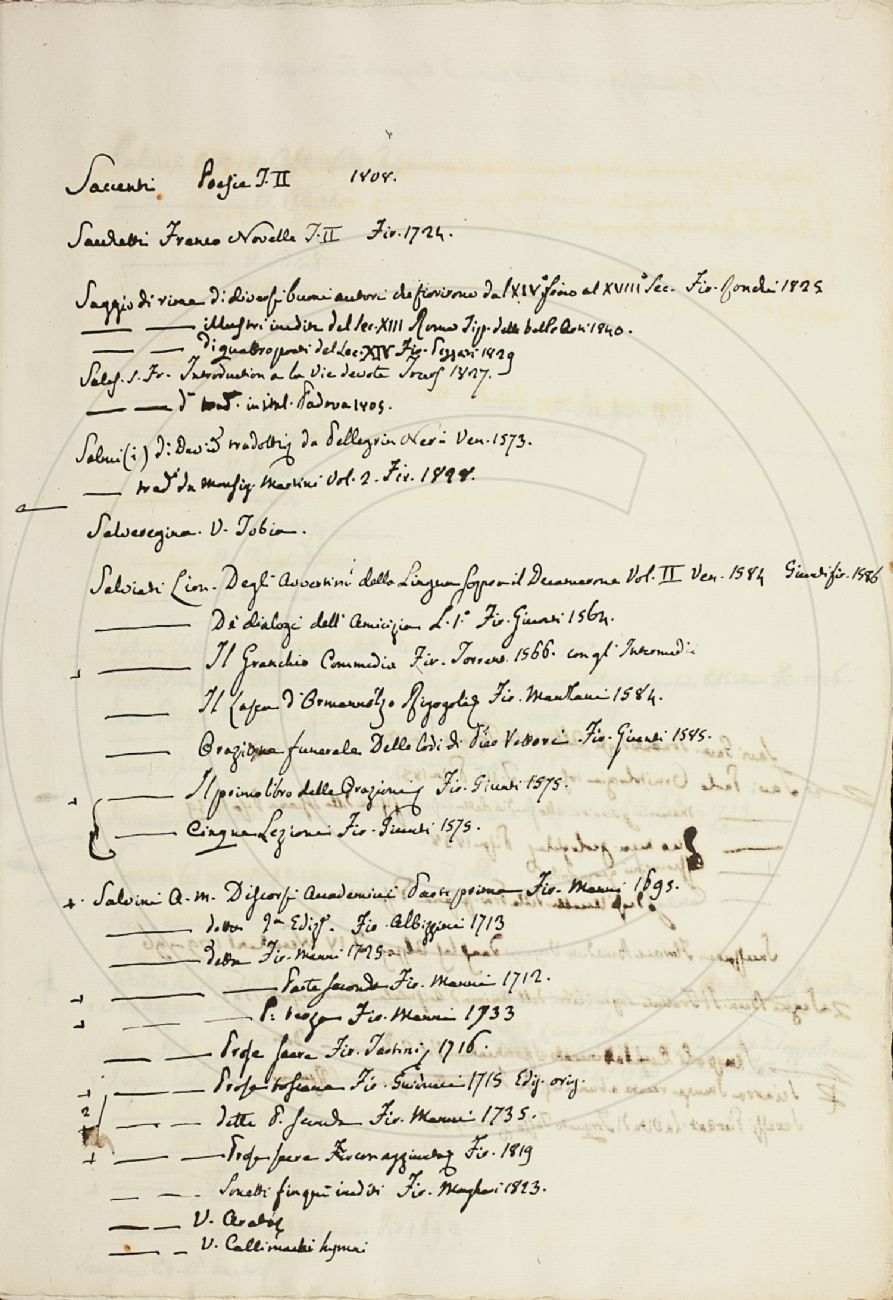 Saccenti Poesie T. II 1808.
Sacchetti Franco Novelle T. II Fir. 1724.
Saggio di rime di diversi buoni autori che fiorirono dal XIV° fino al XVIII° Sec. Fir. Ronchi 1825
—— —— illustri inedite del Sec. XIII Roma Tip. delle belle Arti 1840.
—— —— di quattro poeti del Sec. XIV Fir. Pezzati 1829
Sales. S. Fr. Introduction a la Vie devote 1827.
—— —— d° trad. in ital. Padova 1805.
Salmi (i) di David tradotti da Pellegrin Neri Ven. 1573.
—— trad. da Monsig. Martini Vol. 2. Fir. 1828.
Salveregina. V. Tobia.
Salviati Lion. Degli Avvertimi della Lingua sopra il Decamerone Vol. II Ven. 1584 Giunti fir. 1586
—— De dialogi dell' Amicizia L. 1° Fir. Giunti 1564.
—— Il Granchio Commedia Fir. Torren. 1566. con gl' Intermedi
—— Il Lasca d' Ormannozzo Rigogoli Fir. Manzani 1584.
—— Orazione funerale Delle lodi di Pier Vettori Fir. Giunti 1585.
—— Il primo libro delle Orazioni Fir. Giunti 1575.
—— Cinque Lezioni Fir. Giunti 1575.
+ Salvini A. M. Discorsi Accademici Parte prima Fir. Manni 1695.
—— detta 2a Ediz. Fir. Albizzini 1713
—— detta Fir. Manni 1725
—— —— Parte seconda Fir. Manni 1712.
—— —— P. terza Fir. Manni 1733
—— —— Prose sacre Fir. Tartini 1716.
—— —— Prose toscane Fir. Guiducci 1715 Ediz. orig.
—— —— dette P. seconda Fir. Manni 1735.
+ —— —— Prose sacre con aggiunte Fir. 1819
—— —— Sonetti finqui inediti Fir. Magheri 1823.
—— —— V. Arato
—— —— V. Callimachi hymni